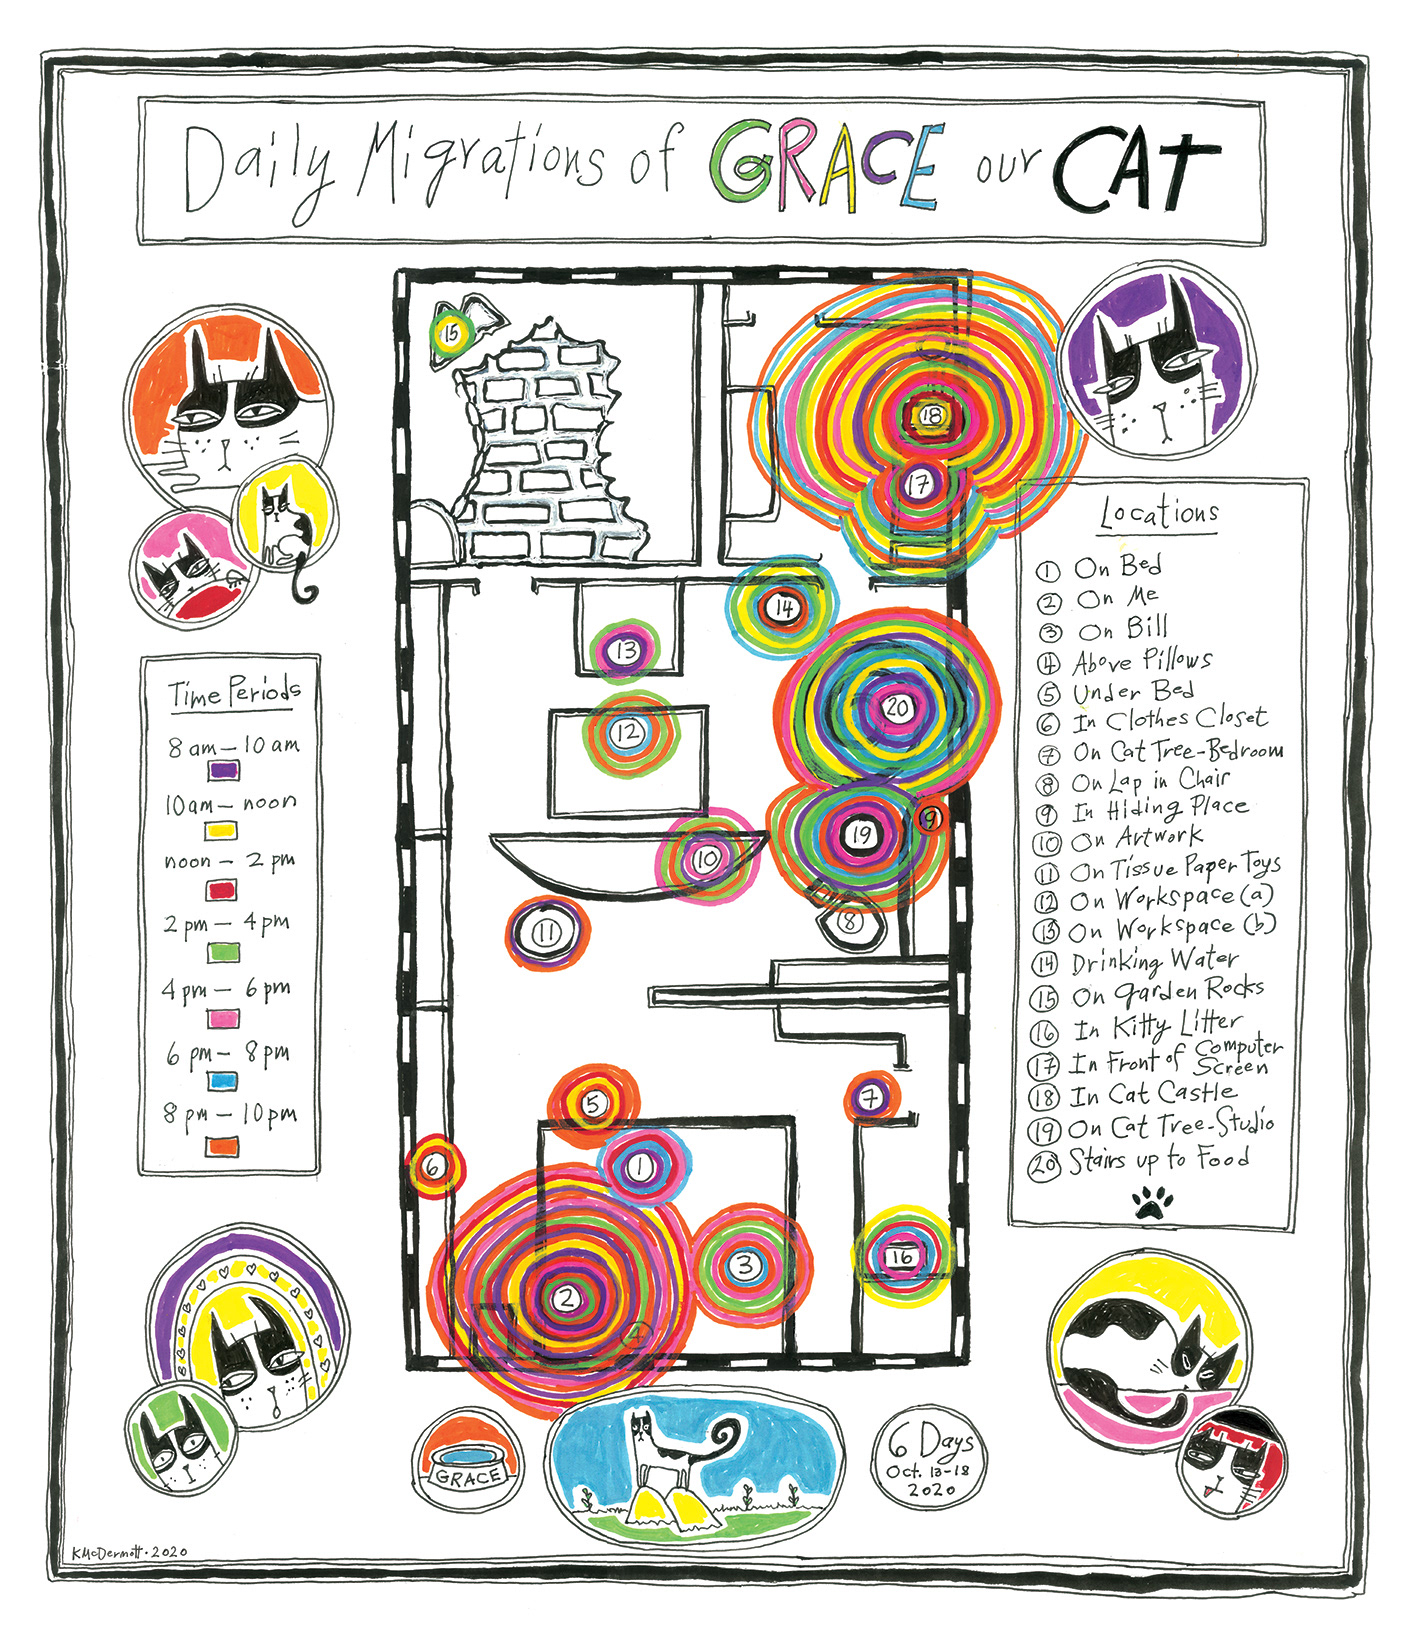 Daily Migrations of GRACE our CAT
15
18
17
14
13
20
12
9
19
10
8
11
5
7
6
1
16
3
2
4
Time Periods
8 am – 10 am
10am – noon
noon – 2 pm
2 pm – 4 pm
4 pm – 6 pm
6 pm – 8 pm
8 pm – 10 pm
Locations
1 On Bed
2 On Me
3 On Bill
4 Above Pillows
5 Under Bed
6 In Clothes Closet
7 On Cat Tree-Bedroom
8 On Lap in Chair
9 In Hiding Place
10 On Artwork
11 On Tissue Paper Toys
12 On Workspace (a)
13 On Workspace (b)
14 Drinking Water
15 On Garden Rocks
16 In Kitty Litter
17 In Front of Computer
Screen
18 In Cat Castle
19 On Cat Tree-Studio
20 Stairs up to Food
GRACE
6 Days
Oct. 13-18
2020
KMcDermott · 2020